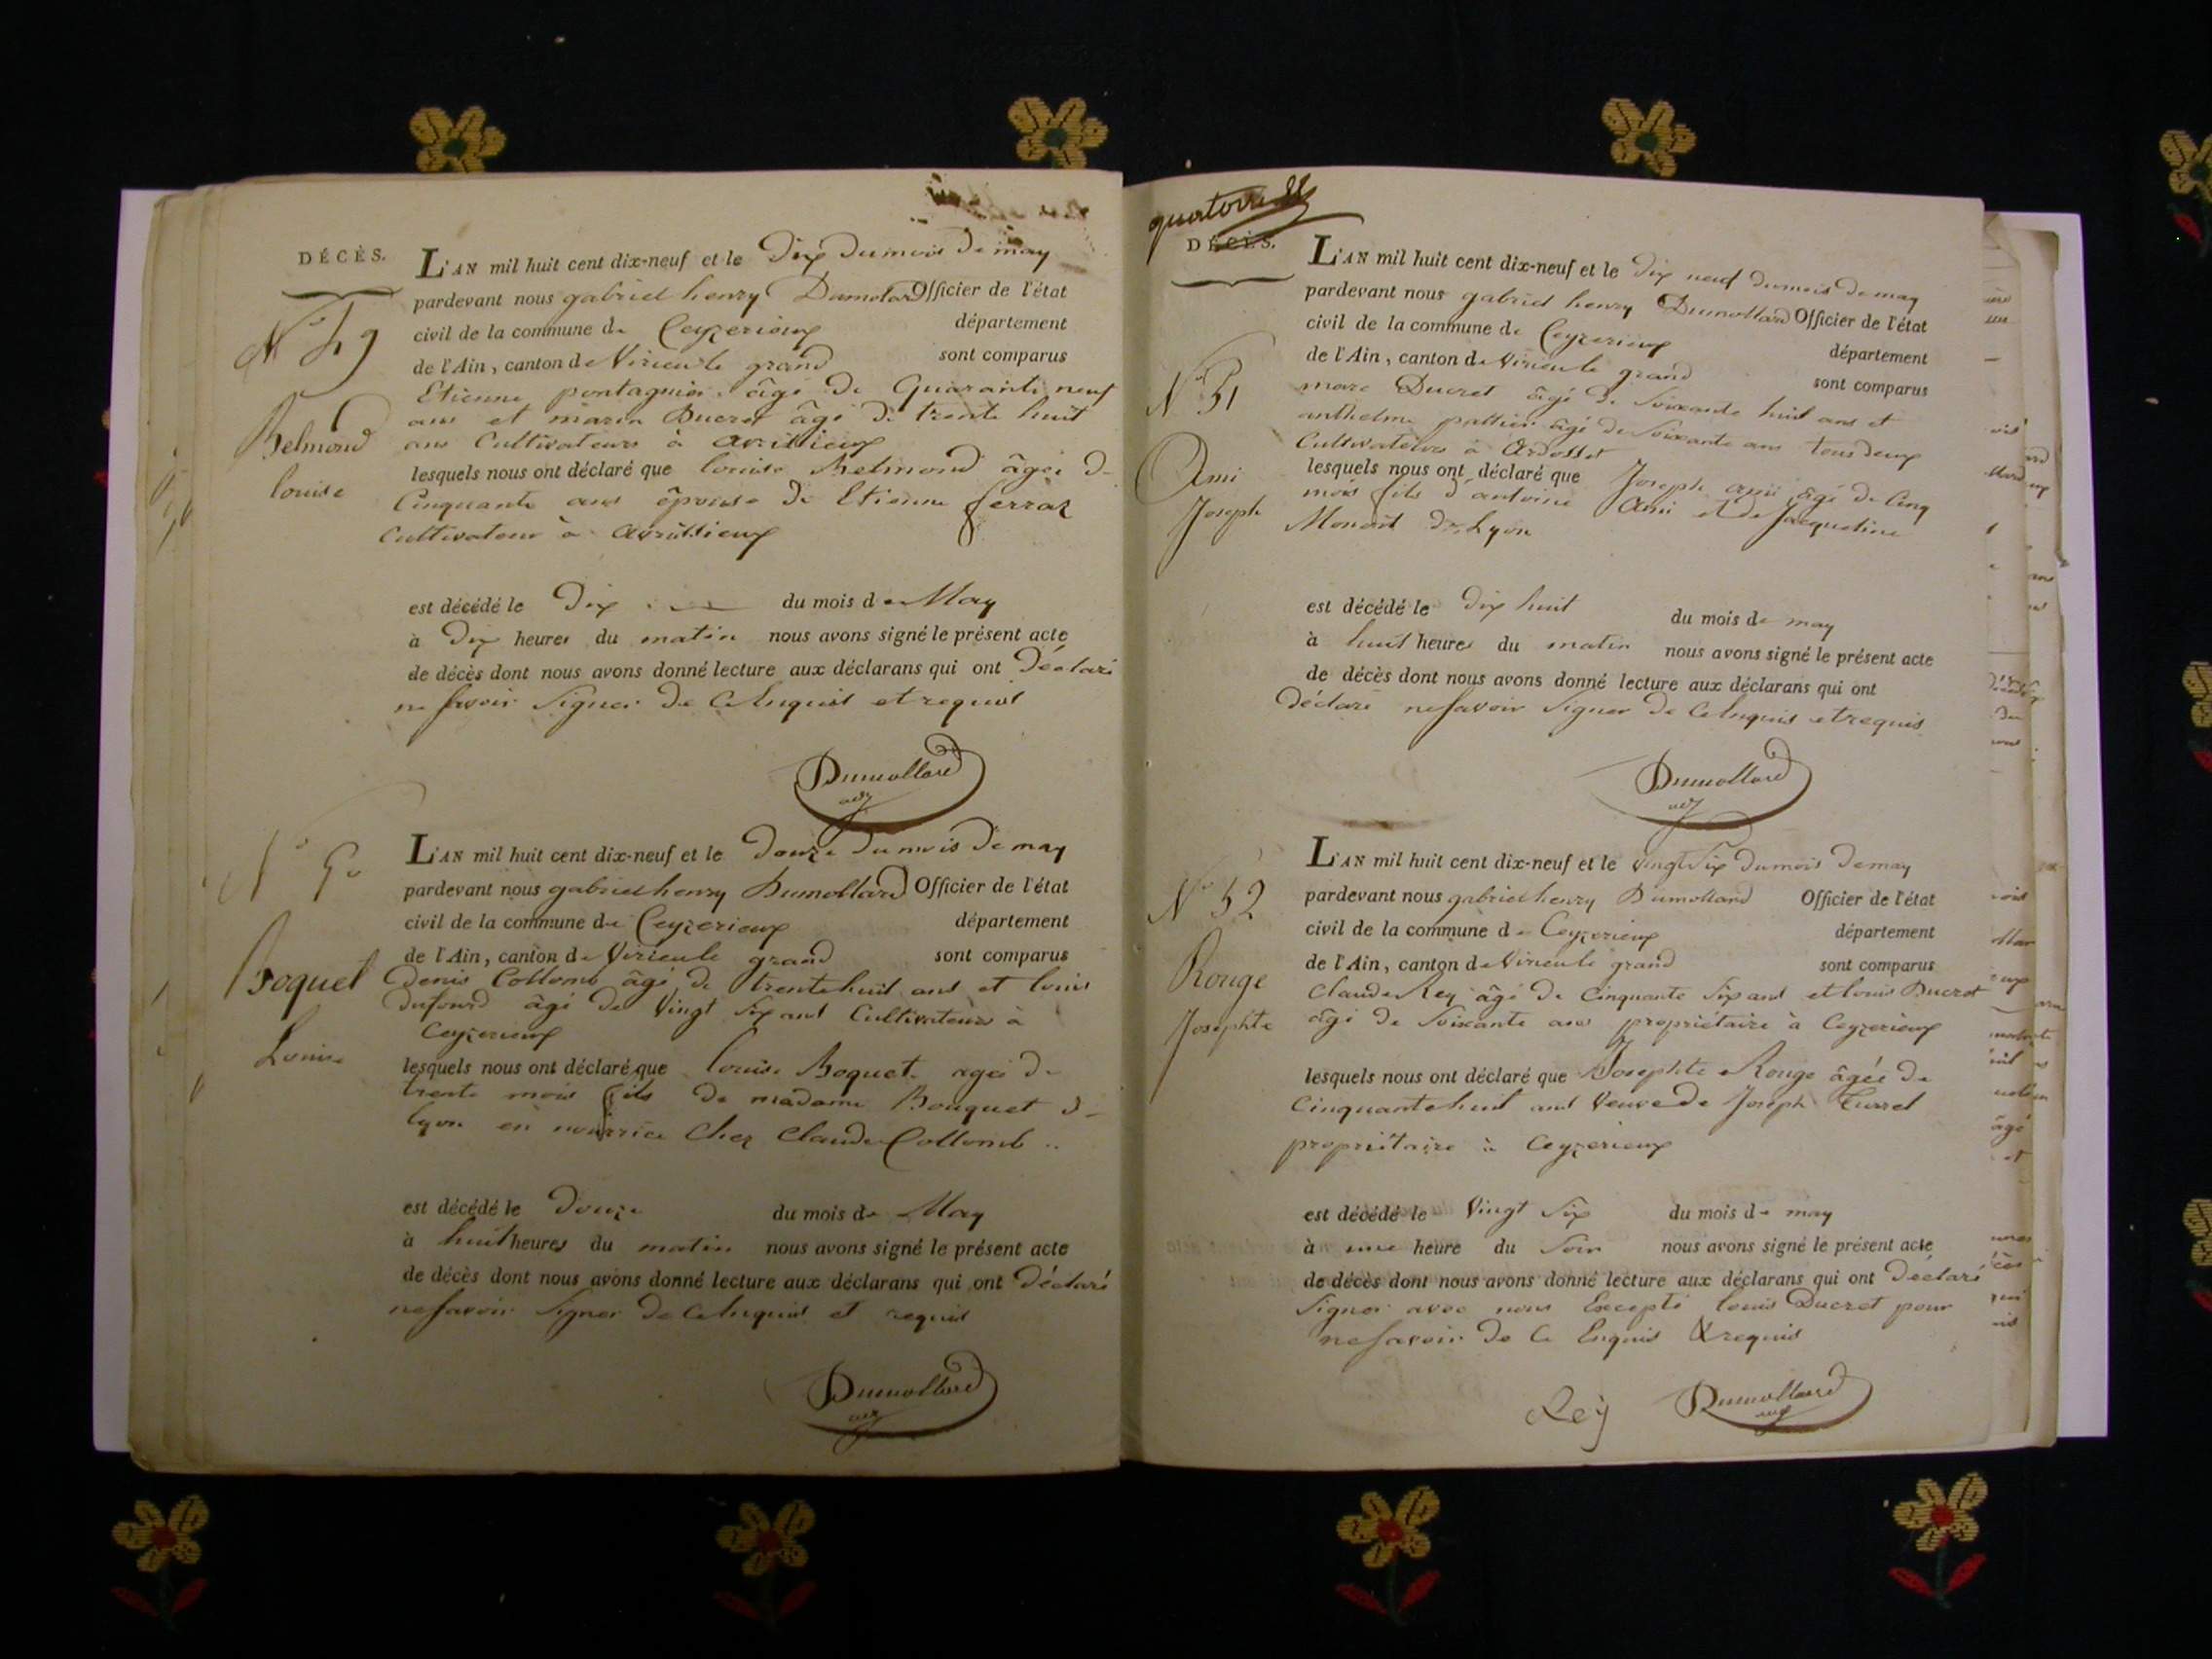 DÉCÈS.
N° 49
Belmond
louise
L'AN mil huit cent dix-neuf et le Dix du mois de may
pardevant nous gabriel henry Dumolard Officier de l'état
civil de la commune de Ceyzerieux département
de l'Ain, canton de Virieu le grand sont comparus
Etienne pontagnier âgé de Quarante neuf
ans et marin Ducret âgé de trente huit
ans Cultivateurs à avrissieux
lesquels nous ont déclaré que louise Belmond âgée de
Cinquante ans épouse de Etienne ferraz
Cultivateur à avrissieux
est décédé le Dix du mois de May
à Dix heures du matin nous avons signé le présent acte
de décès dont nous avons donné lecture aux déclarans qui ont Déclaré
ne savoir signer de ce Enquis et requis
Dumollard
adj
N° 50
Boquet
Louise
L'AN mil huit cent dix-neuf et le douze du mois de may
pardevant nous gabriel henry Dumollard Officier de l'état
civil de la commune de Ceyzerieux département
de l'Ain, canton de Virieu le grand sont comparus
Denis Collomb âgé de trente huit ans et louis
dufourd âgé de Vingt Six ans Cultivateurs à
Ceyzerieux
lesquels nous ont déclaré que louise Boquet agée de
trente mois fils de madame Bouquet de
lyon en nourrice Chez Claude Collomb
est décédé le Douze du mois de May
à huit heures du matin nous avons signé le présent acte
de décès dont nous avons donné lecture aux déclarans qui ont Déclaré
ne savoir signer de ce Enquis et requis
Dumollard
adj
DÉCÈS.
N° 51
Ami
Joseph
L'AN mil huit cent dix-neuf et le Dix neuf du mois de may
pardevant nous gabriel henry Dumollard Officier de l'état
civil de la commune de Ceyzerieux département
de l'Ain, canton de Virieu le grand sont comparus
marc Ducret âgé de Soixante huit ans et
anthelme pattier âgé de Soixante ans tous deux
Cultivateurs à Ardosset
lesquels nous ont déclaré que Joseph ami âgé de Cinq
mois fils d'antoine Ami et de Jacqueline
de Lyon
est décédé le dix huit du mois de may
à huit heures du matin nous avons signé le présent acte
de décès dont nous avons donné lecture aux déclarans qui ont
déclaré ne savoir signer de ce Enquis et requis
Dumollard
adj
N° 52
Rouge
Josephte
L'AN mil huit cent dix-neuf et le vingt Six du mois de may
pardevant nous gabriel henry Dumollard Officier de l'état
civil de la commune de Ceyzerieux département
de l'Ain, canton de Virieu le grand sont comparus
Claude Rey âgé de Cinquante Six ans et louis Ducret
âgé de Soixante ans propriétaire à Ceyzerieux
lesquels nous ont déclaré que Josephte Rouge âgée de
Cinquante huit ans Veuve de Joseph Turrel
propriétaire à Ceyzerieux
est décédé le Vingt Six du mois de may
à une heure du Soir nous avons signé le présent acte
de décès dont nous avons donné lecture aux déclarans qui ont Déclaré
Signer avec nous Excepté louis Ducret pour
ne savoir de ce Enquis & requis
Rey
Dumollard
adj